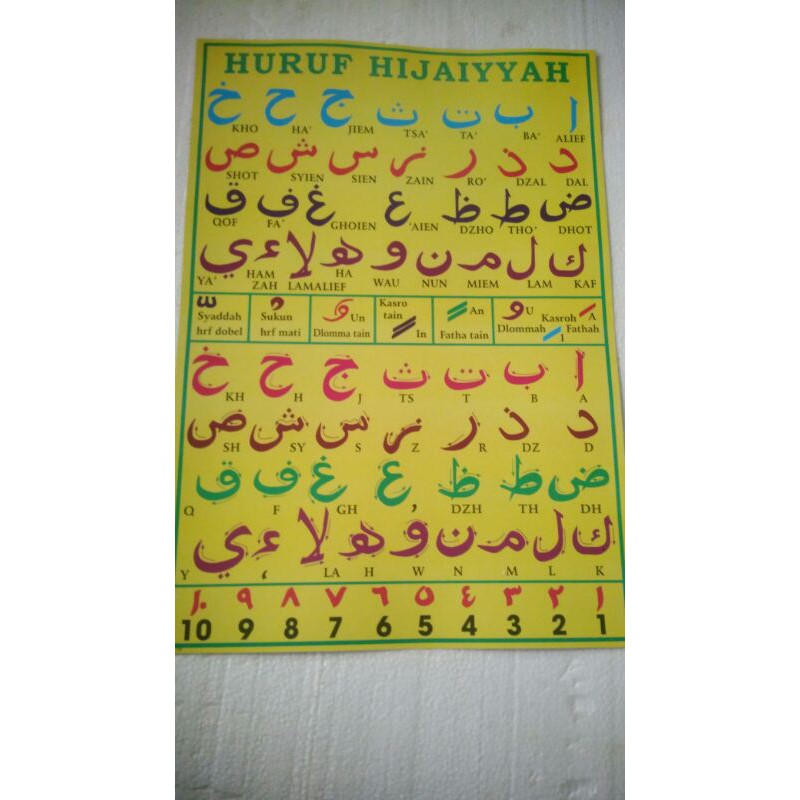 HURUF HIJAIYYAH
ا ب ت ث ج ح خ
KHO HA' JIEM TSA' TA' BA' ALIEF
د ذ ر ز س ش ص
SHOT SYIEN SIEN ZAIN RO' DZAL DAL
ض ط ظ ع غ ف ق
QOF FA' GHOIEN 'AIEN DZHO THO' DHOT
ك ل م ن و ه لا ء ي
YA' HAM ZAH LAMALIEF HA WAU NUN MIEM LAM KAF
Syaddah hrf dobel
Sukun hrf mati
Un Dlomma tain
Kasro tain In
An Fatha tain
U Dlommah Kasroh I A Fathah
ا ب ت ث ج ح خ
KH H J TS T B A
د ذ ر ز س ش ص
SH SY S Z R DZ D
ض ط ظ ع غ ف ق
Q F GH ' DZH TH DH
ك ل م ن و ه لا ء ي
Y ‘ LA H W N M L K
١ ٢ ٣ ٤ ٥ ٦ ٧ ٨ ٩ ١٠
10 9 8 7 6 5 4 3 2 1